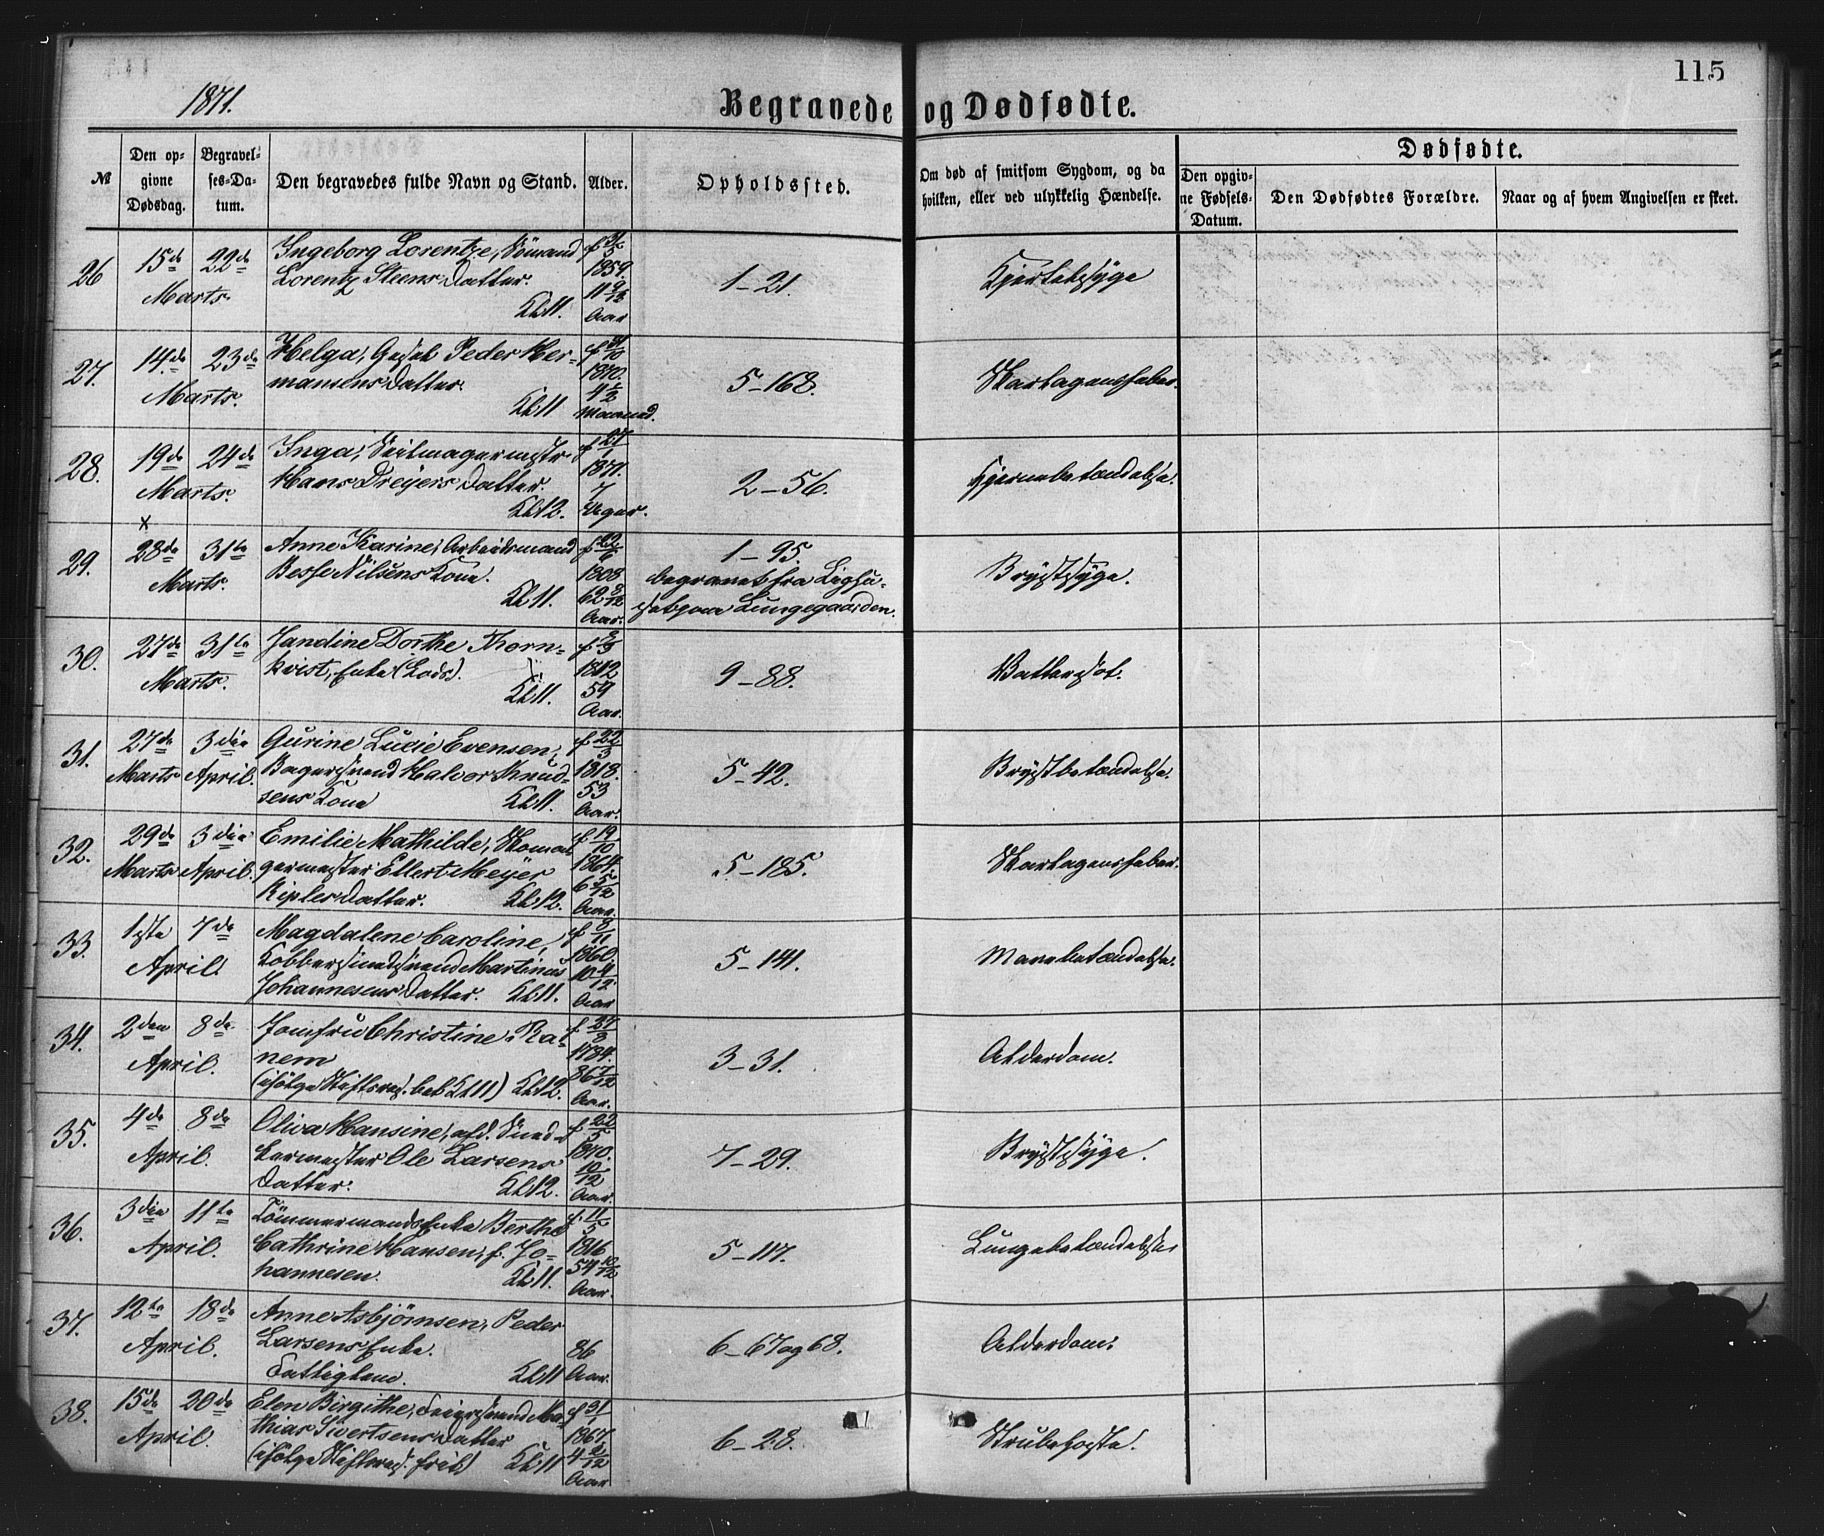 115
1871.
Begravede og Dødfødte.
№
Den opgivne Dødsdag.
Begravelses-Datum.
Den begravedes fulde Navn og Stand.
Alder.
Opholdssted.
Om død af smitsom Sygdom, og da hvilken, eller ved ulykkelig Hændelse.
Dødfødte.
Den opgivne Fødsels-Datum.
Den Dødfødtes Forældre.
Naar og af hvem Angivelsen er skeet.
26 15de 22de Marts.
Ingeborg Lorentze, Sömand
Lorentz Steens Datter.
Kl. 11.
f 31/5 1859. 11 9/12 Aar
1-21.
Kjertelsyge
27. 14de 23de Marts.
Helga, Peder Her-
mansens Datter
Kl. 11
f 31/10 1870. 4 1/2 Maaned.
5-168.
Skarlagensfeber.
28. 19de 24de Marts.
Inga, Seilmagermestr
Hans Dreyers Datter.
Kl. 12.
f 27/1 1871. 7 Uger.
2-56.
Hjernebetændelse.
x
29. 28de 31te Marts.
Anne Karine, Arbeidsmand
Besse Nilsens Kone.
Kl. 11.
f 1808 62 9/12 Aar.
1-95.
begravet fra Lighu-
set paa Lungegaarden.
Brystsyge.
30. 27de 31te Marts.
Jandine Dorthe Thorn-
kvist, Enke (Lods).
Kl. 11.
1812 59 Aar.
9-88.
Vattersot.
31. 27de Marts 3die April.
Gurine Lucie Evensen,
Bagersvend Halvor Knud-
sens Kone
Kl. 11.
f 22/3 1818. 53 Aar.
5-42.
Brystbetændelse.
32. 29de Marts 3die April.
Emilie Mathilde, Skoma-
germester Ellert Meyer
Riplers Datter.
Kl. 12.
f 19/10 1864. 6 5/12 Aar.
5-185.
Skarlagensfeber.
33. 1ste 7de April
Magdalene Caroline,
Kobbersmedsvend Martinus
Johannesens Datter. Kl. 11.
f 8/11 1860. 10 4/12 Aar
5-141.
Mavebetændelse.
34. 2den 8de April.
Jomfru Christine Ra-
nem
(ifölge Skiftsret. bet. Kl. 11) Kl. 12.
f. 27/8 1784. 86 7/12 Aar.
3-31.
Alderdom.
35. 4de 8de April.
Oliva Hansine, afd. Sned-
kermester Ole Larsens
Datter.
Kl. 12.
f 22/5 1870. 10/12 Aar.
7-29.
Brystsyge.
36. 3die 11te April.
Tömmermandsenke Berthe
Cathrine Hansen, f. Jo-
hannesen.
Kl. 11.
f. 11/5 1816 54 10/12 Aar.
5-117.
Lungebetændelse
37. 12te 18de April.
Anne Asbjørnsen, Peder
Larsens Enke.
Fattiglem.
Kl. 11
86 Aar.
6-67 og 68.
Alderdom.
38. 15de 20de April.
Elen Birgithe, Feiersvend Ma-
thias Sivertsens Datter
(ifölge Skiftsret. frit) Kl. 11
f 31/1 1867. 4 2/12 Aar
6-28.
Strubehoste.